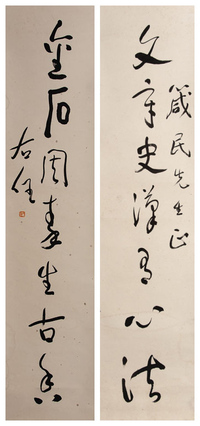 文章史漢有心法
箴民先生正
金石周秦生古香
右任